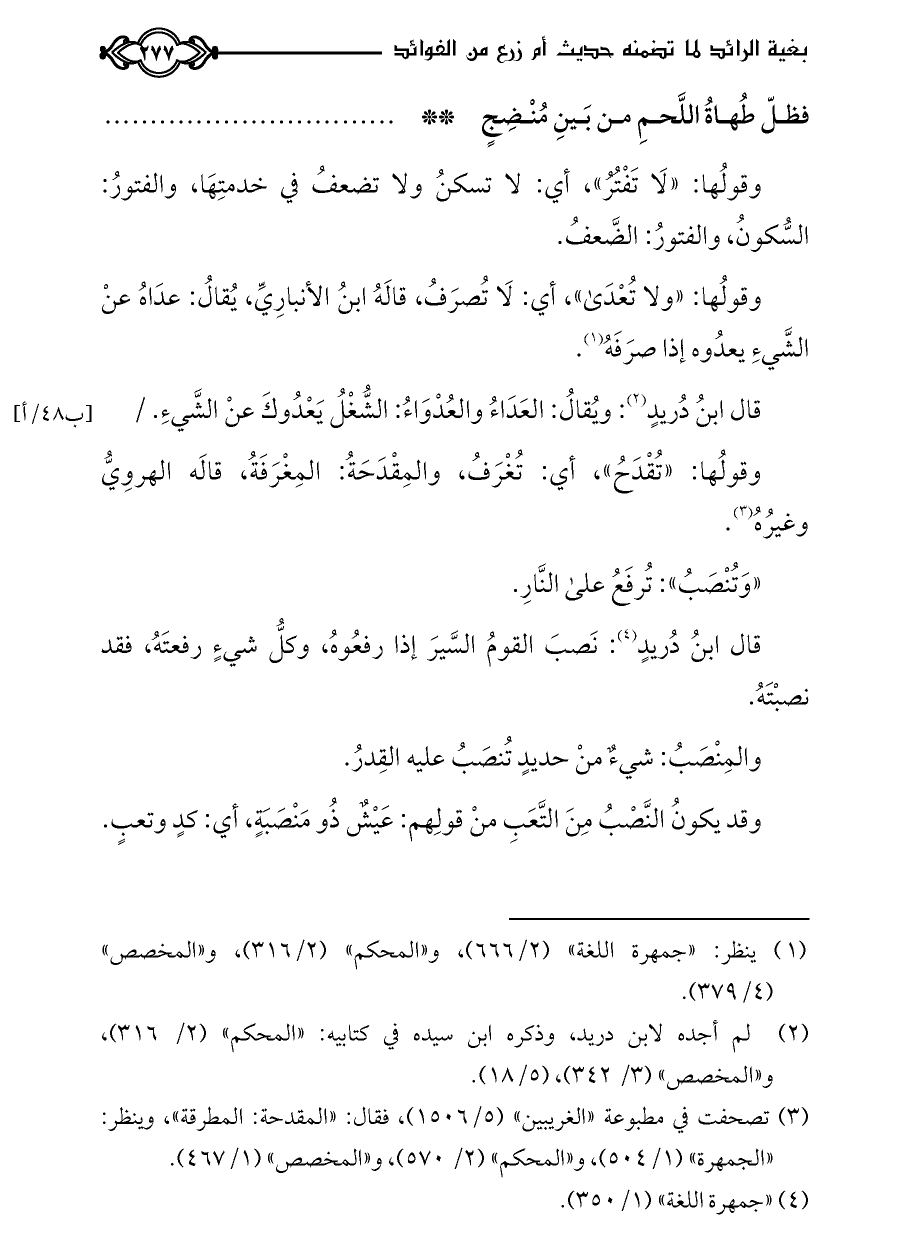 بغية الرائد لما تضمنه حديث أم زرع من الفوائد ٢٧٧
فظـلّ طُهـاةُ اللَّحـمِ مـن بَـينِ مُنْـضِجٍ ** ................................
وقولُها: «لَا تَفْتُرُ»، أي: لا تسكنُ ولا تضعفُ في خدمتِهَا، والفتورُ:
السُّكونُ، والفتورُ: الضَّعفُ.
وقولُها: «ولا تُعْدَىٰ»، أي: لَا تُصرَفُ، قالَهُ ابنُ الأنبارِيِّ، يُقالُ: عدَاهُ عنْ
الشَّيءِ يعدُوه إذا صرَفَهُ(١).
قال ابنُ دُريدٍ(٢): ويُقالُ: العَدَاءُ والعُدْوَاءُ: الشُّغْلُ يَعْدُوكَ عنْ الشَّيءِ. / [ب٤٨/ أ]
وقولُها: «تُقْدَحُ»، أي: تُغْرَفُ، والمِقْدَحَةُ: المِغْرَفَةُ، قالَه الهروِيُّ
وغيرُهُ(٣).
«وَتُنْصَبُ»: تُرفَعُ علىٰ النَّارِ.
قال ابنُ دُريدٍ(٤): نَصبَ القومُ السَّيرَ إذا رفعُوهُ، وكلُّ شيءٍ رفعتَهُ، فقد
نصبْتَهُ.
والمِنْصَبُ: شيءٌ منْ حديدٍ تُنصَبُ عليه القِدرُ.
وقد يكونُ النَّصْبُ مِنَ التَّعَبِ منْ قولِهم: عَيْشٌ ذُو مَنْصَبَةٍ، أي: كدٍ وتعبٍ.
(١) ينظر: «جمهرة اللغة» (٢/ ٦٦٦)، و«المحكم» (٢/ ٣١٦)، و«المخصص»
(٤/ ٣٧٩).
(٢) لم أجده لابن دريد، وذكره ابن سيده في كتابيه: «المحكم» (٢/ ٣١٦)،
و«المخصص» (٣/ ٣٤٢)، (٥/ ١٨).
(٣) تصحفت في مطبوعة «الغريبين» (٥/ ١٥٠٦)، فقال: «المقدحة: المطرقة»، وينظر:
«الجمهرة» (١/ ٥٠٤)، و«المحكم» (٢/ ٥٧٠)، و«المخصص» (١/ ٤٦٧).
(٤) «جمهرة اللغة» (١/ ٣٥٠).